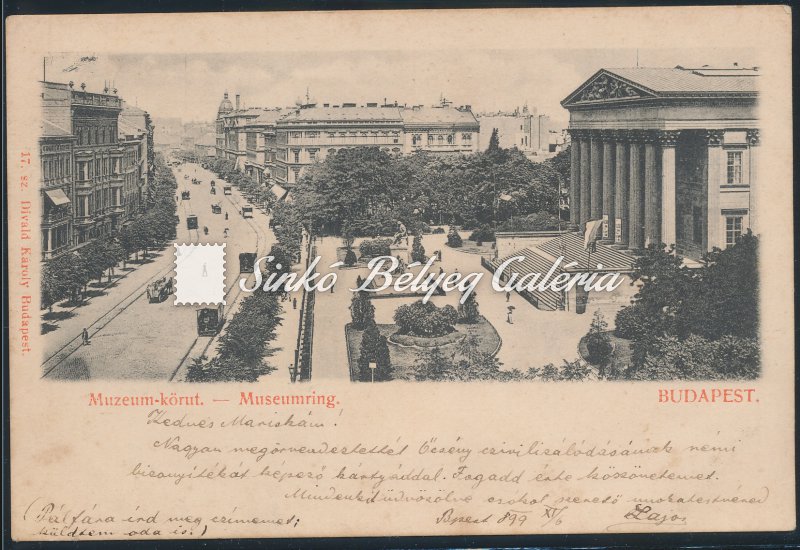 17. sz. Divald Károly Budapest.
Sinkó Bélyeg Galéria
Muzeum-körut. — Museumring.
BUDAPEST.
Kedves Mariskám!
Nagyon megörvendeztettél Őcsény czivilisálódásának némi
bizonyítékát képező kártyáddal. Fogadd érte köszönetemet.
Mindenkit üdvözölve csókol szerető unokatestvéred
Bpest 899 XI/6 Lajos
(Pálfára írd meg czimemet;
küldtem oda is!)